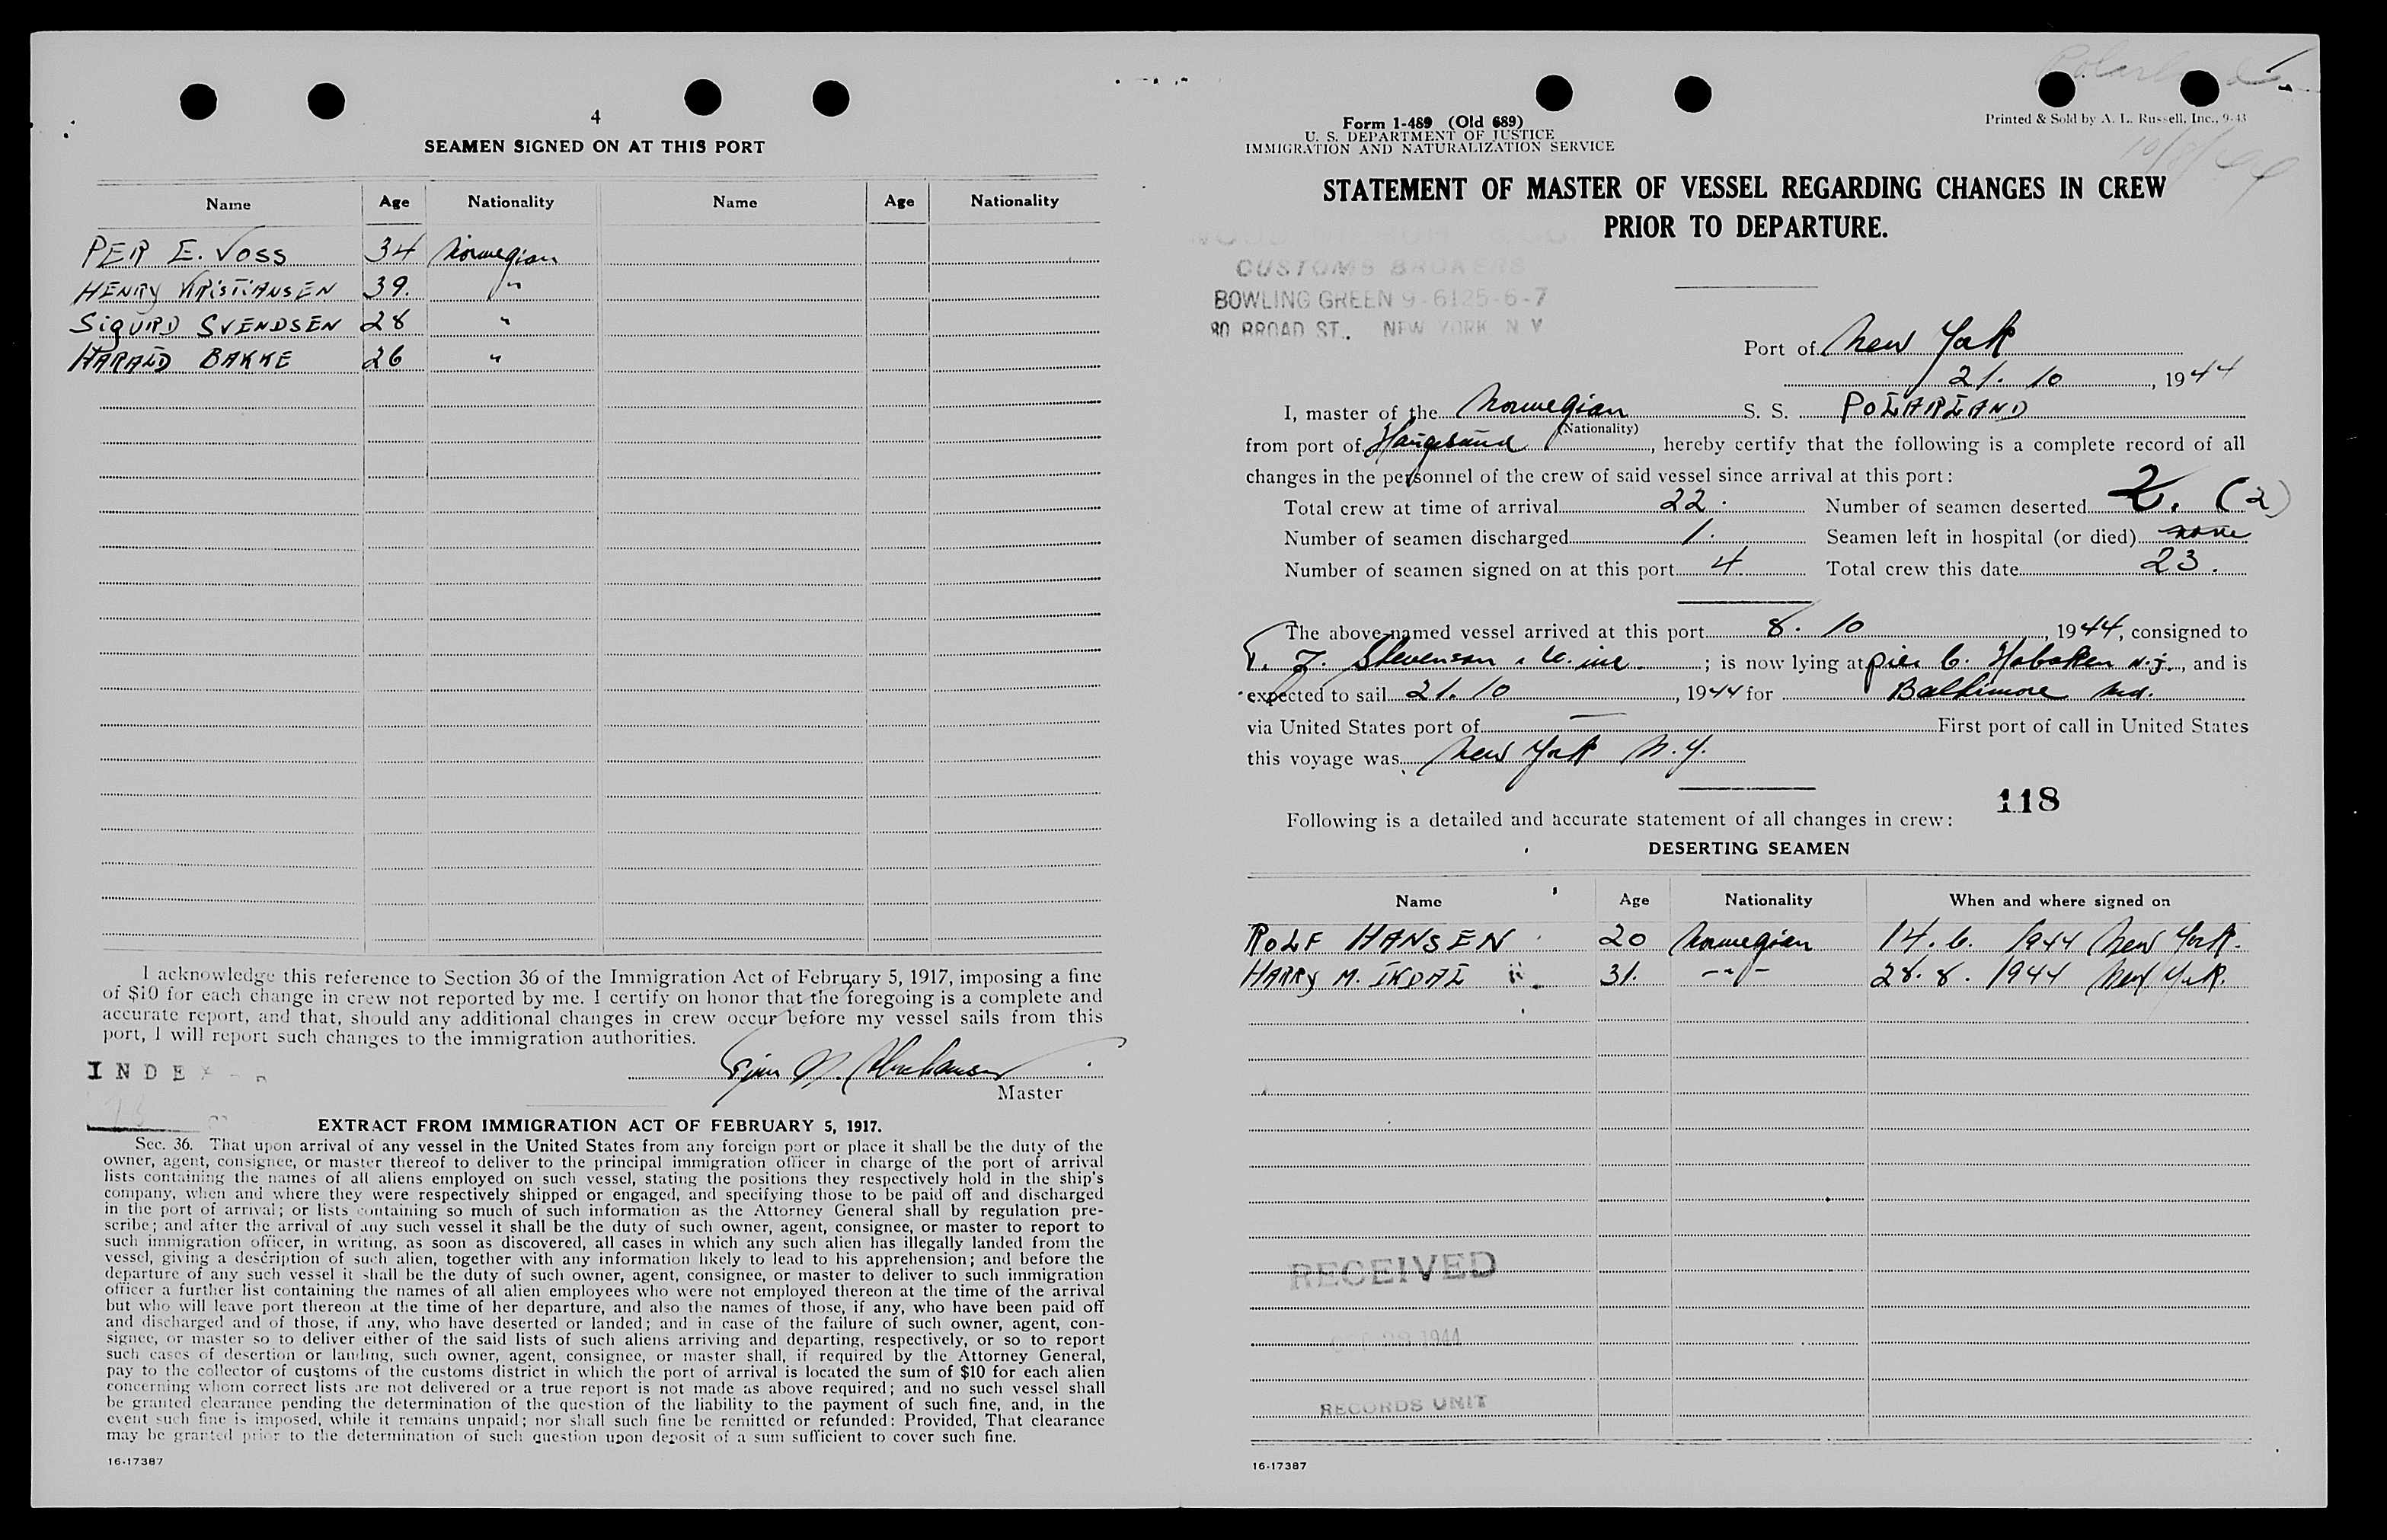 4
SEAMEN SIGNED ON AT THIS PORT
Name Age Nationality Name Age Nationality
PER E. VOSS 34 Norwegian
HENRY KRISTIANSEN 39. "
SIGURD SVENDSEN 28 "
HARALD BAKKE 26 "
I acknowledge this reference to Section 36 of the Immigration Act of February 5, 1917, imposing a fine
of $10 for each change in crew not reported by me. I certify on honor that the foregoing is a complete and
accurate report, and that, should any additional changes in crew occur before my vessel sails from this
port, I will report such changes to the immigration authorities.
INDEX
Master
EXTRACT FROM IMMIGRATION ACT OF FEBRUARY 5, 1917.
Sec. 36. That upon arrival of any vessel in the United States from any foreign port or place it shall be the duty of the
owner, agent, consignee, or master thereof to deliver to the principal immigration officer in charge of the port of arrival
lists containing the names of all aliens employed on such vessel, stating the positions they respectively hold in the ship's
company, when and where they were respectively shipped or engaged, and specifying those to be paid off and discharged
in the port of arrival; or lists containing so much of such information as the Attorney General shall by regulation pre-
scribe; and after the arrival of any such vessel it shall be the duty of such owner, agent, consignee, or master to report to
such immigration officer, in writing, as soon as discovered, all cases in which any such alien has illegally landed from the
vessel, giving a description of such alien, together with any information likely to lead to his apprehension; and before the
departure of any such vessel it shall be the duty of such owner, agent, consignee, or master to deliver to such immigration
officer a further list containing the names of all alien employees who were not employed thereon at the time of the arrival
but who will leave port thereon at the time of her departure, and also the names of those, if any, who have been paid off
and discharged and of those, if any, who have deserted or landed; and in case of the failure of such owner, agent, con-
signee, or master so to deliver either of the said lists of such aliens arriving and departing, respectively, or so to report
such cases of desertion or landing, such owner, agent, consignee, or master shall, if required by the Attorney General,
pay to the collector of customs of the customs district in which the port of arrival is located the sum of $10 for each alien
concerning whom correct lists are not delivered or a true report is not made as above required; and no such vessel shall
be granted clearance pending the determination of the question of the liability to the payment of such fine, and, in the
event such fine is imposed, while it remains unpaid; nor shall such fine be remitted or refunded: Provided, That clearance
may be granted prior to the determination of such question upon deposit of a sum sufficient to cover such fine.
16-17387
Form 1-489 (Old 689)
U. S. DEPARTMENT OF JUSTICE
IMMIGRATION AND NATURALIZATION SERVICE
Printed & Sold by A. L. Russell, Inc., 9-43
10/8/44
STATEMENT OF MASTER OF VESSEL REGARDING CHANGES IN CREW
PRIOR TO DEPARTURE.
CUSTOMS BROKERS
BOWLING GREEN 9-6125-6-7
80 BROAD ST., NEW YORK N Y
Port of New York
21. 10, 1944
I, master of the Norwegian S. S. POLARLAND
(Nationality)
from port of Haugesund, hereby certify that the following is a complete record of all
changes in the personnel of the crew of said vessel since arrival at this port:
Total crew at time of arrival 22. Number of seamen deserted 2. (2)
Number of seamen discharged 1. Seamen left in hospital (or died) none
Number of seamen signed on at this port 4 Total crew this date 23.
The above-named vessel arrived at this port 8. 10, 1944, consigned to
T. J. Stevenson & Co. inc.; is now lying at pier 6. Hoboken N.J., and is
expected to sail 21. 10, 1944 for Baltimore Md.
via United States port of — First port of call in United States
this voyage was New York N.Y.
118
Following is a detailed and accurate statement of all changes in crew:
DESERTING SEAMEN
Name Age Nationality When and where signed on
ROLF HANSEN 20 Norwegian 14. 6. 1944 New York.
HARRY M. IKDAL 31. -"- 28. 8. 1944 New York.
RECEIVED
1944
RECORDS UNIT
16-17387